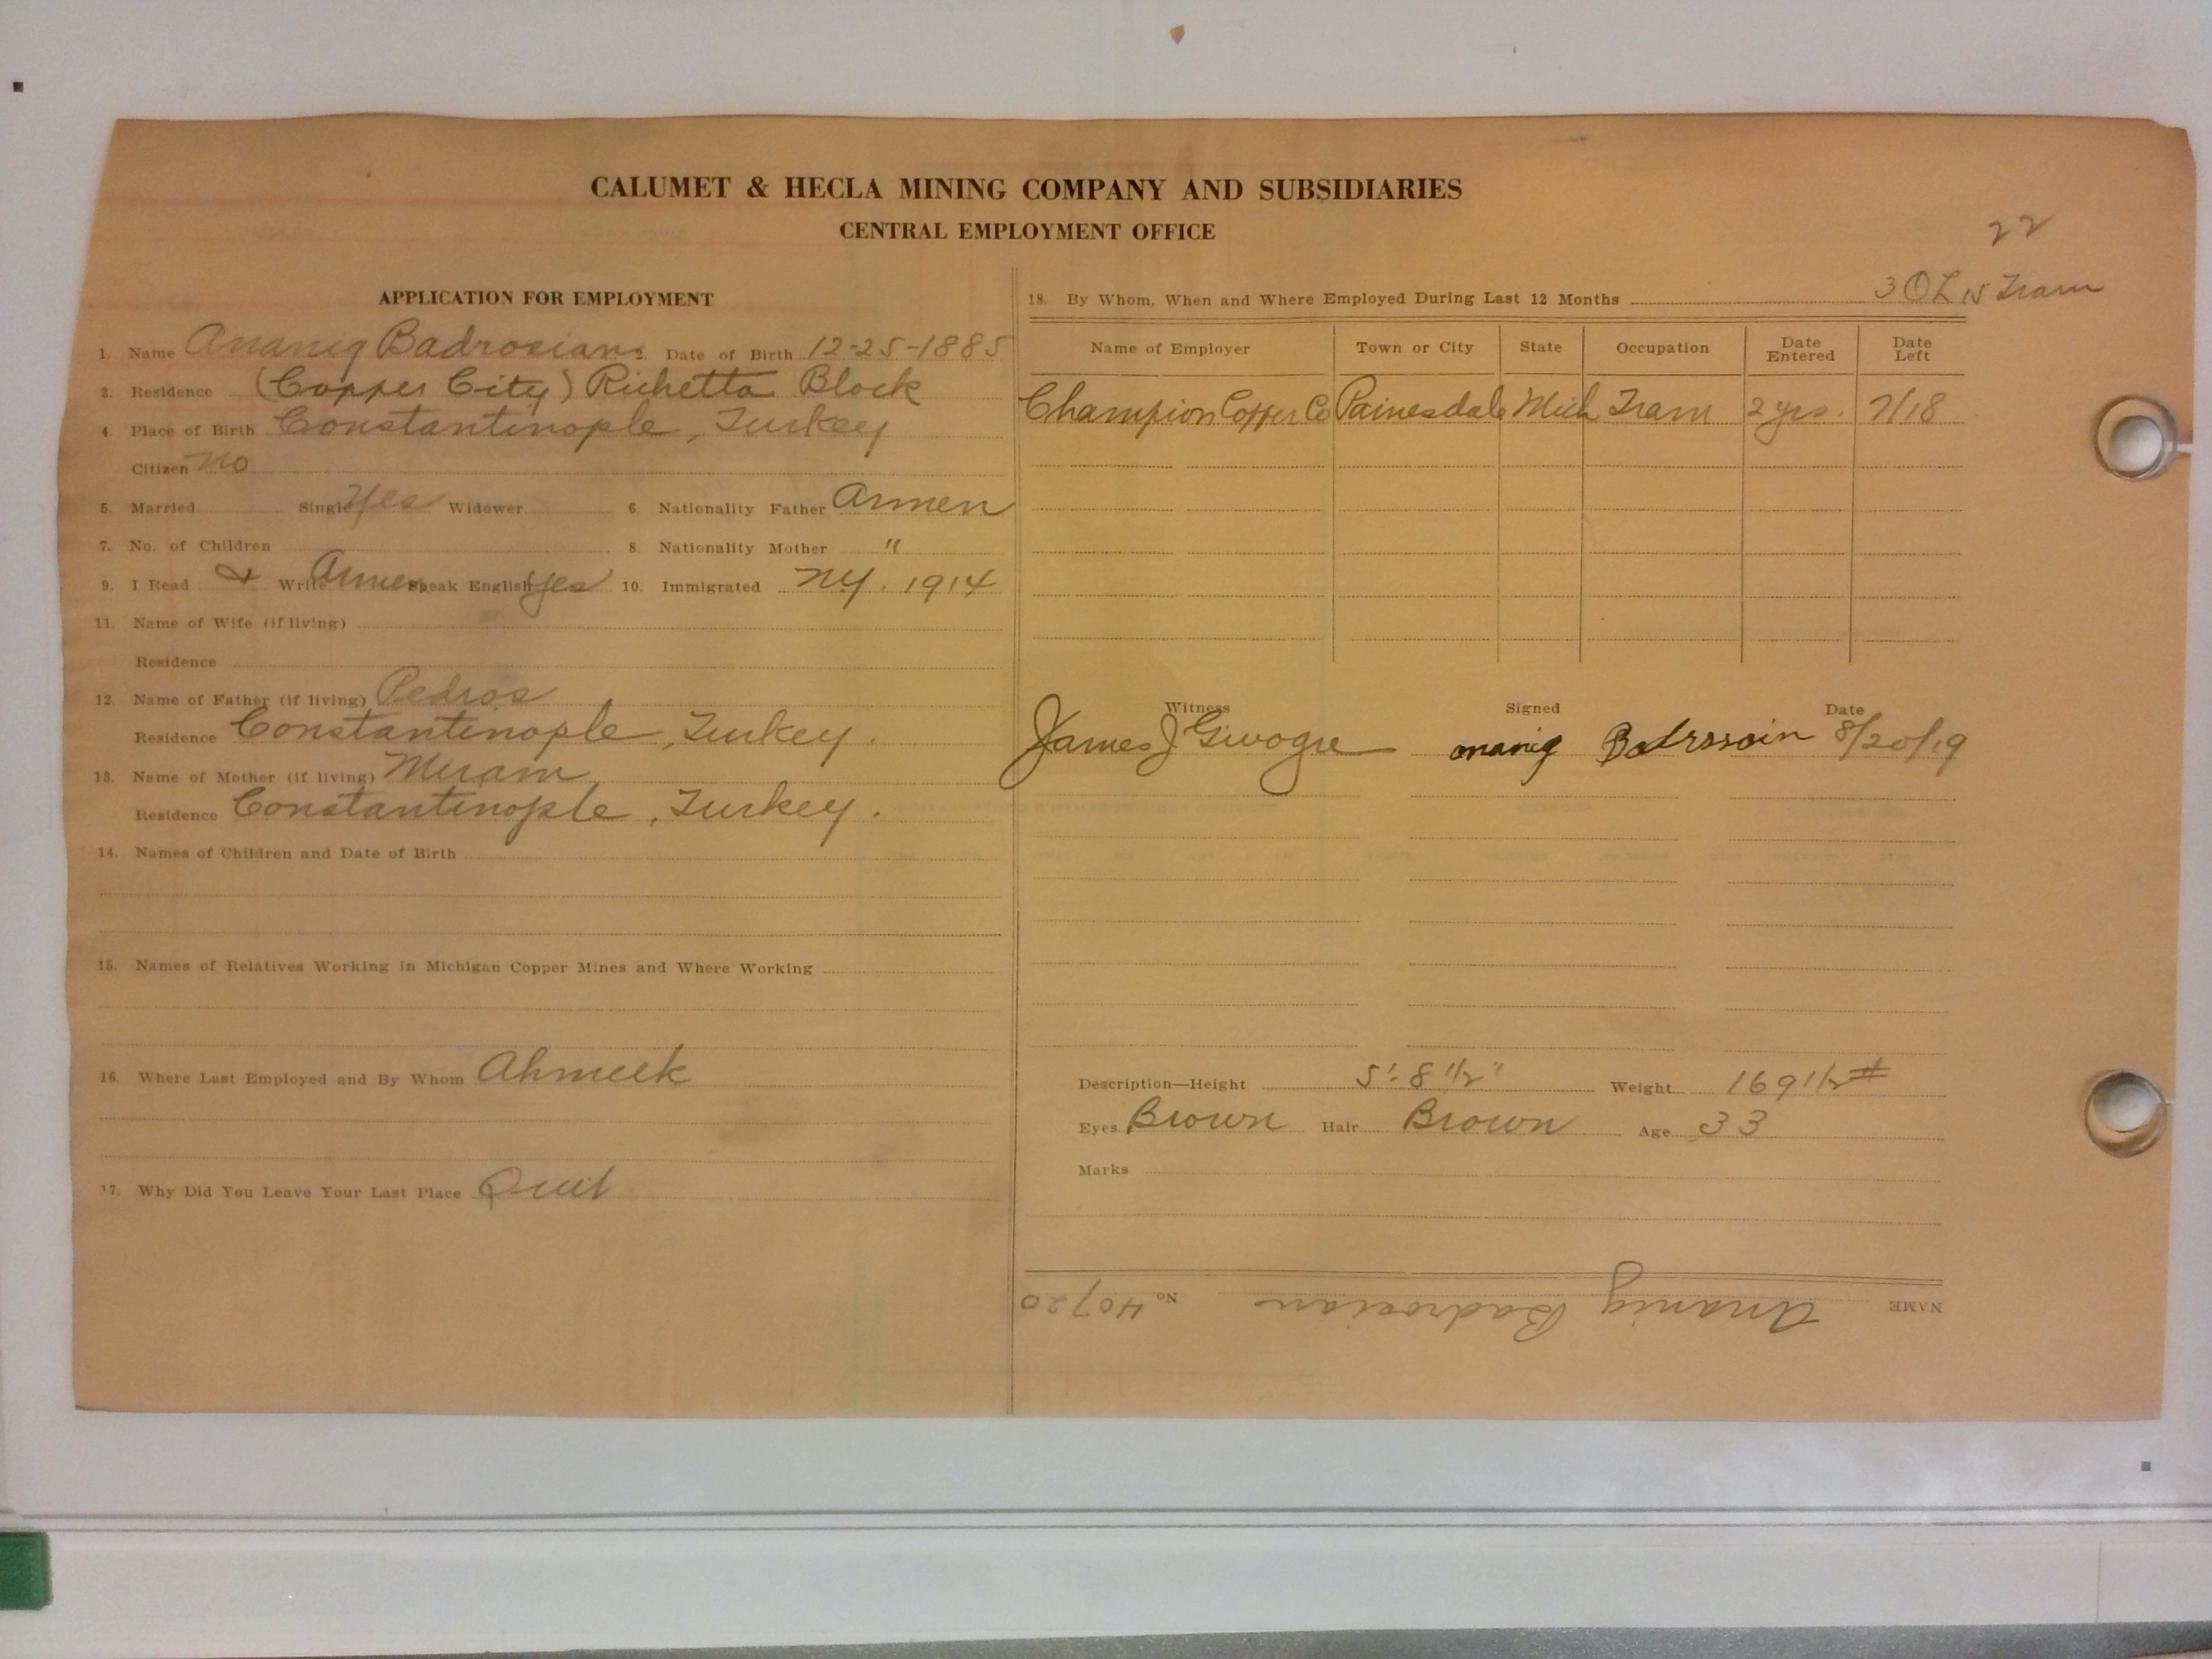 CALUMET & HECLA MINING COMPANY AND SUBSIDIARIES
CENTRAL EMPLOYMENT OFFICE
22
APPLICATION FOR EMPLOYMENT
1. Name Ananig Badrosian 2. Date of Birth 12-25-1885
3. Residence (Copper City) Richetta Block
4. Place of Birth Constantinople, Turkey
Citizen No
5. Married Single Yes Widower 6. Nationality Father Armen
7. No. of Children 8. Nationality Mother "
9. I Read & Write Armen Speak English Yes 10. Immigrated NY. 1914
11. Name of Wife (if living)
Residence
12. Name of Father (if living) Pedros
Residence Constantinople, Turkey.
13. Name of Mother (if living) Miriam
Residence Constantinople, Turkey.
14. Names of Children and Date of Birth
15. Names of Relatives Working in Michigan Copper Mines and Where Working
16. Where Last Employed and By Whom Ahmeek
17. Why Did You Leave Your Last Place Quit
18. By Whom, When and Where Employed During Last 12 Months Tram
Name of Employer Town or City State Occupation Date Entered Date Left
Champion Copper Co Painesdale Mich Tram 2 yrs. 7/18
Witness Signed Date
James J onanig Badrosoin 8/20/19
Description—Height 5'-8 1/2" Weight 169 1/2 #
Eyes Brown Hair Brown Age 33
Marks
NAME Ananig Badrosian No. 40720